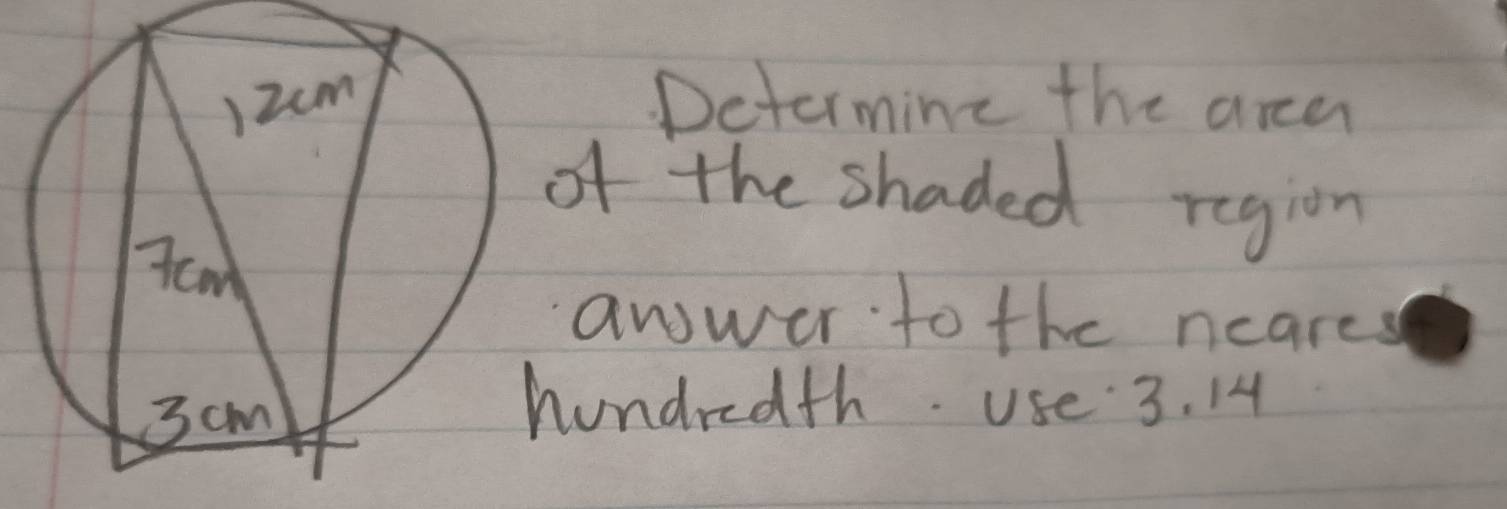 12cm
7cm
3cm
Determine the area
of the shaded region
answer to the nearest
hundredth. use 3.14